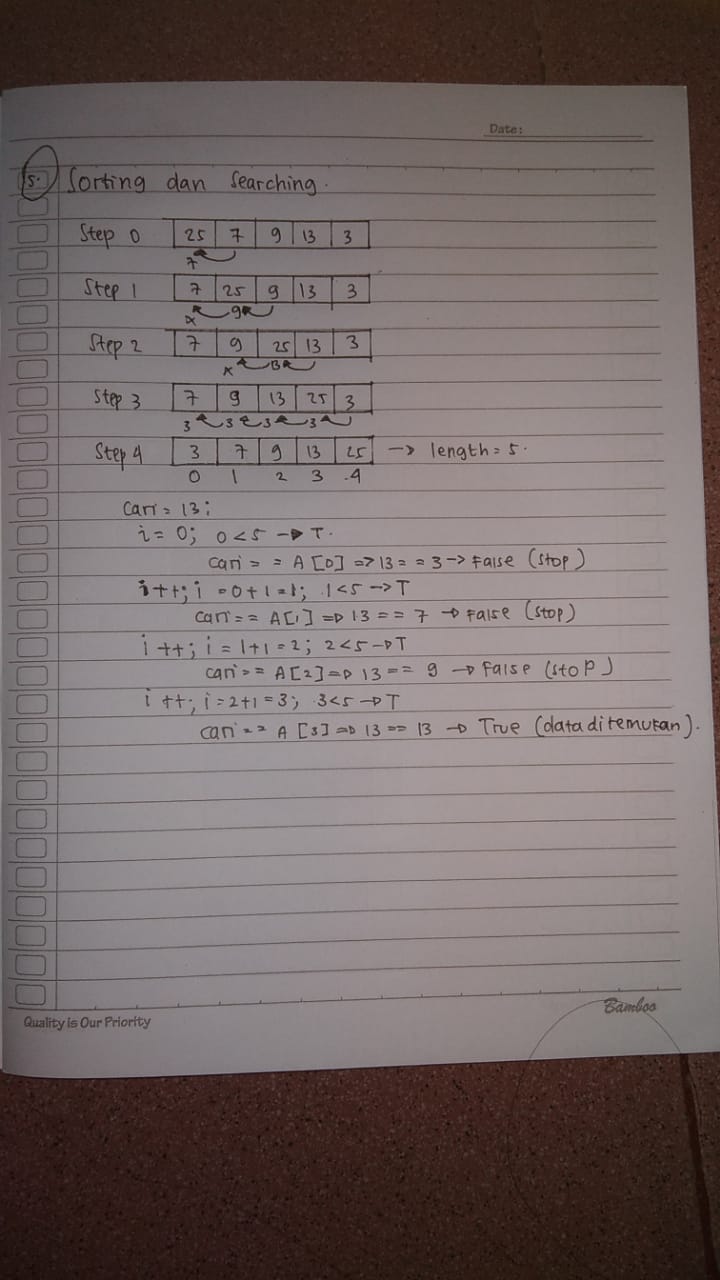 Date:
5. Sorting dan Searching.
Step 0 25 7 9 13 3
7
Step 1 7 25 9 13 3
x 9
Step 2 7 9 25 13 3
x 13
Step 3 7 9 13 25 3
3 3 3 3
Step 4 3 7 9 13 25 -> length = 5.
0 1 2 3 4
Cari = 13;
i = 0; 0<5 -> T.
cari = = A [0] => 13 = = 3 -> False (stop)
i++; i = 0+1 = 1; 1<5 -> T
cari == A[1] => 13 == 7 -> False (stop)
i ++; i = 1+1 = 2; 2<5 -> T
cari == A[2] => 13 == 9 -> False (stop)
i ++; i = 2+1 = 3; 3<5 -> T
cari == A [3] => 13 == 13 -> True (data ditemukan).
Quality is Our Priority
Bamboo